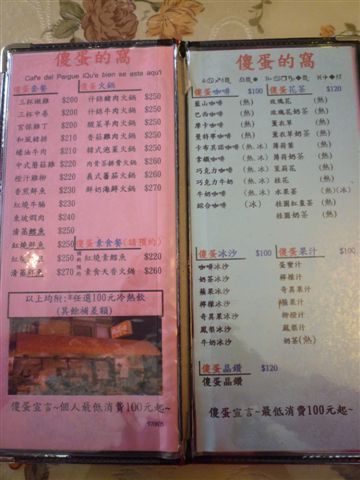 傻蛋的窩
Cafe del Parque ¡Qu'e bien se esta aqu'i
傻蛋套餐
三杯嫩雞 $200
三杯中卷 $200
宮保雞丁 $200
和風豬排 $210
蠔油牛肉 $210
中式蘑菇雞 $220
橙汁雞柳 $220
香煎鮮魚 $230
紅燒牛腩 $230
東坡焢肉 $240
清蒸鱈魚 $250
紅燒鮮魚 $250
紅燒鱈魚 $260
清蒸鮮魚 $270
傻蛋火鍋
什錦豬肉火鍋 $250
什錦牛肉火鍋 $250
酸菜羊肉火鍋 $250
番茄雞肉火鍋 $250
韓式泡菜火鍋 $250
肉骨茶排骨火鍋 $260
義式蕃茄火鍋 $260
鮮奶海鮮火鍋 $260
傻蛋素食餐(請預約)
紅燒素鱈魚 $220
素食天香火鍋 $260
以上均附:任選100元冷熱飲
(其餘補差額)
傻蛋宣言~個人最低消費100元起~
傻蛋的窩
傻蛋咖啡 $100
藍山咖啡 (熱)
巴西咖啡 (熱)
摩卡咖啡 (熱)
曼特寧咖啡 (熱)
卡布其諾咖啡 (熱)(冰)
拿鐵咖啡 (熱)(冰)
巧克力咖啡 (熱)(冰)
巧克力牛奶 (熱)(冰)
牛奶咖啡 (熱)(冰)
綜合咖啡 (冰)
傻蛋花茶 $120
玫瑰花 (熱)
玫瑰花奶茶 (熱)
薰衣草 (熱)
薰衣草奶茶 (熱)
薄荷葉 (熱)
薄荷奶茶 (熱)
茉莉花 (熱)
水果茶 (熱)(冰)
桂圓紅棗茶 (熱)
桂圓奶茶 (熱)
傻蛋冰沙 $100
咖啡冰沙
奶茶冰沙
蘋果冰沙
檸檬冰沙
奇異果冰沙
鳳梨冰沙
牛奶冰沙
傻蛋果汁 $100
蛋蜜汁
檸檬汁
奇異果汁
蘋果汁
柳橙汁
鳳梨汁
奶茶(熱)
傻蛋晶鑽 $120
傻蛋晶鑽
傻蛋宣言~最低消費100元起~